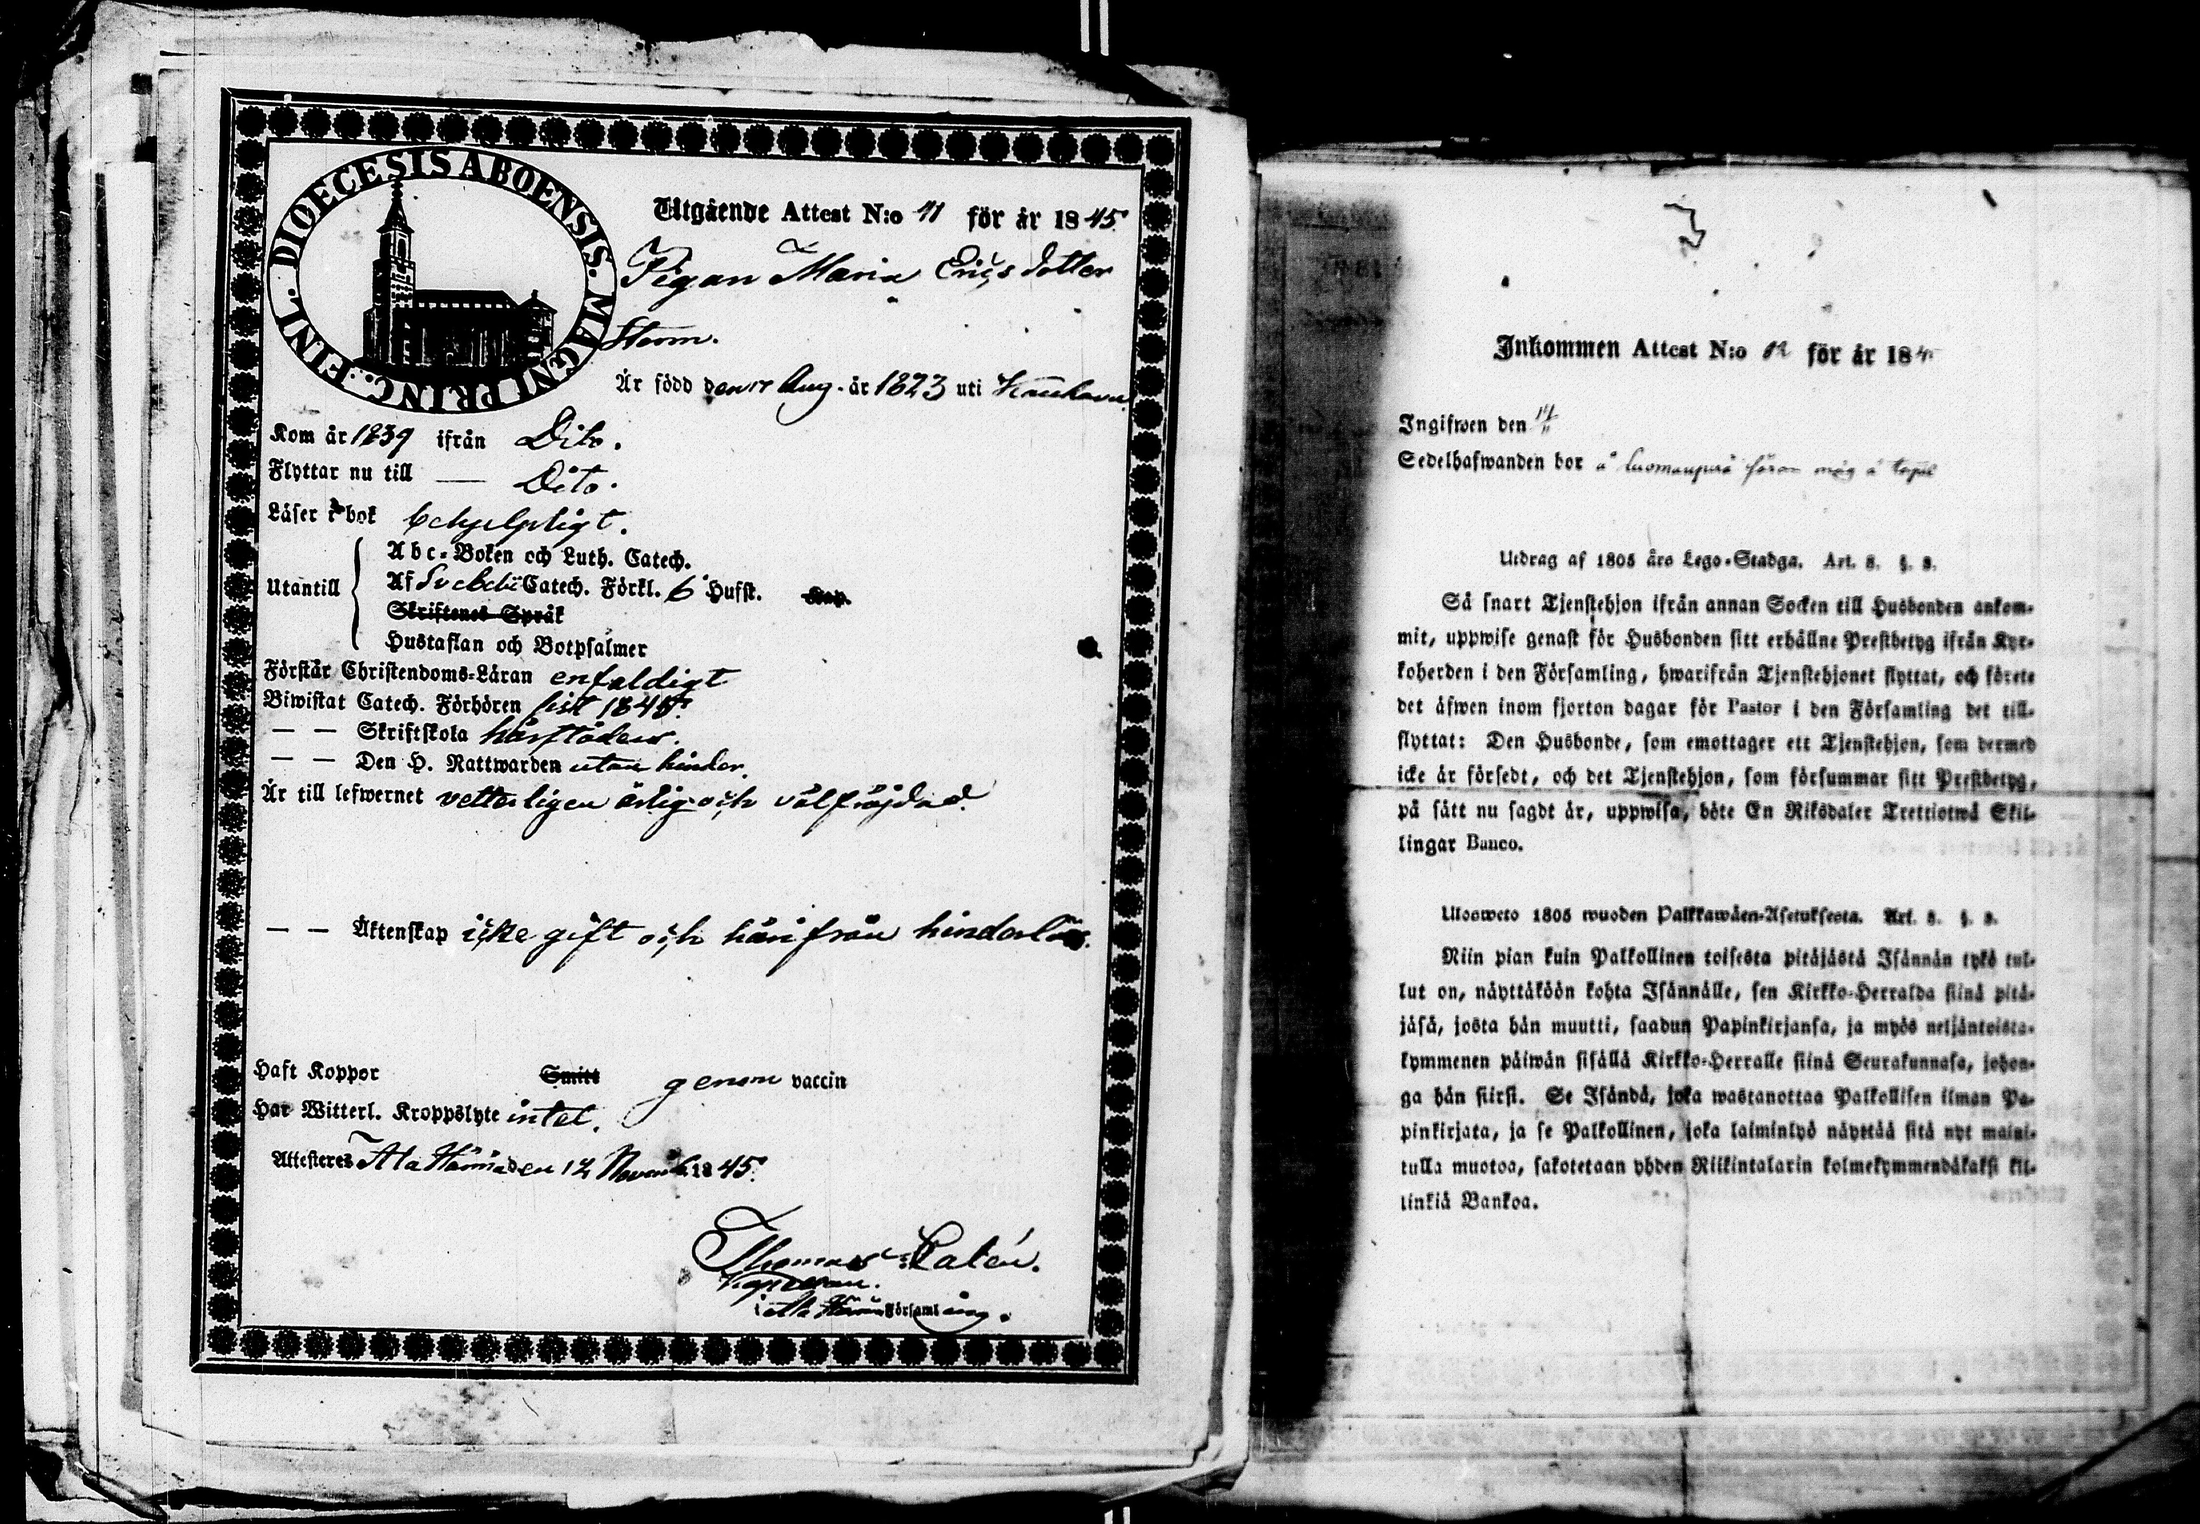 DIOECESIS ABOENSIS. MAGNI PRINC. FINL.
Utgående Attest N:o 41 för år 1845.
Pigan Maria Ericsdotter
Storm.
Är född den 17 Aug. år 1823 uti Kauhava
Kom år 1839 ifrån Dito.
Flyttar nu till — Dito.
Läser i bok behjelpligt.
Utantill
Abc-Boken och Luth. Catech.
Af Svebelii Catech. Förkl. 6 Hufst. Kap.
Skriftenes Språk
Hustaflan och Botpsalmer
Förstår Christendoms-Läran enfaldigt
Biwistat Catech. Förhören sist 1845.
— — Skriftskola härstädes.
— — Den H. Nattwarden utan hinder.
Är till lefwernet vetterligen ärlig och välfräjdad.
— — Äktenskap icke gift och härifrån hinderlös.
Haft Koppor Smitt genom vaccin
Har Witterl. Kroppslyte intet.
Attesteres Ala Härmä den 12 Novemb. 1845.
Thomas Calén.
Kapellan.
i Ala Härmä Församling.
Inkommen Attest N:o för år 184
Ingifwen den
Sedelhafwanden bor å Luomanperä
Utdrag af 1805 års Lego-Stadga. Art. 8. §. 3.
Så snart Tjenstehjon ifrån annan Socken till Husbonden ankom-
mit, uppwise genast för Husbonden sitt erhållne Prestbetyg ifrån Kyr-
koherden i den Församling, hwarifrån Tjenstehjonet flyttat, och förete
det äfwen inom fjorton dagar för Pastor i den Församling det till-
flyttat: Den Husbonde, som emottager ett Tjenstehjon, som dermed
icke är försedt, och det Tjenstehjon, som försummar sitt Prestbetyg,
på sätt nu sagdt är, uppwisa, böte En Riksdaler Trettiotwå Skil-
lingar Banco.
Ulosweto 1805 wuoden Palkkawäen-Asetuksesta. Art. 8. §. 3.
Niin pian kuin Palkollinen toisesta pitäjästä Isännän tykö tul-
lut on, näyttäköön kohta Isännälle, sen Kirkko-Herralda siinä pitä-
jäsä, josta hän muutti, saadun Papinkirjansa, ja myös neljäntoista-
kymmenen päiwän sisällä Kirkko-Herralle siinä Seurakunnasa, johon-
ga hän siirsi. Se Isändä, joka wastanottaa Palkollisen ilman Pa-
pinkirjata, ja se Palkollinen, joka laiminlyö näyttää sitä nyt maini-
tulla muotoa, sakotetaan yhden Riikintalarin kolmekymmendäkaksi kil-
linkiä Bankoa.